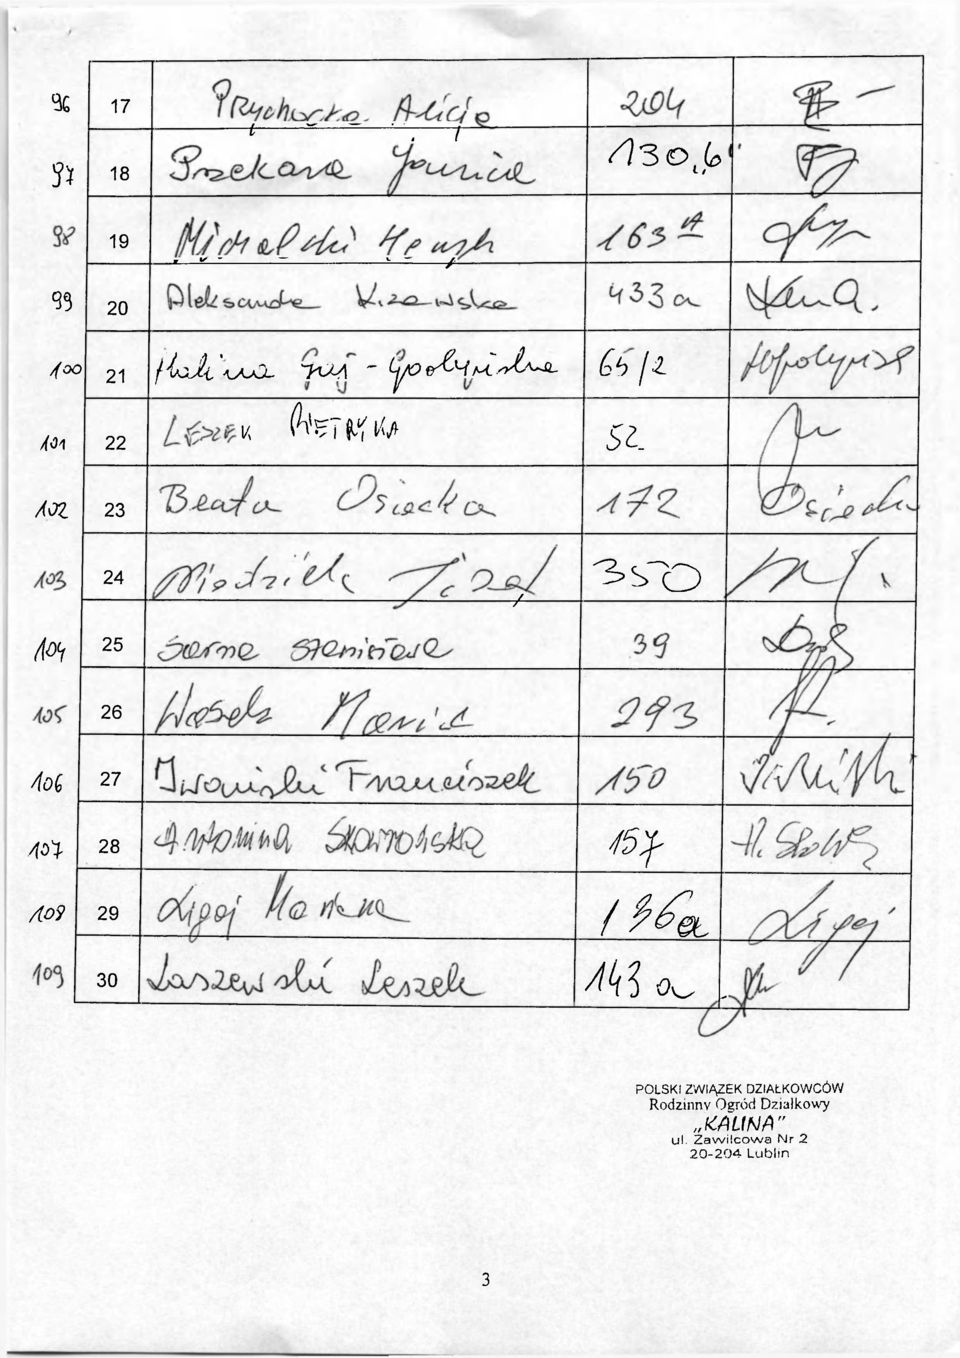 96 17 Przychocka Alicja 204
97 18 Przekora Janina 130 „b"
98 19 Michalski Henryk 163 A
99 20 Aleksandra 433a
100 21 Halina Guj - 65/2
101 22 LESZEK PIETRYKA 52
102 23 Beata Osiecka 172 Osiecka
103 24 Józef 350
104 25 Sarna Stanisława 39
105 26 Wasek Maria 293
106 27 Iwaniski Franciszek 150
107 28 Antonina Skowrońska 157
108 29 Ligaj 136a Ligaj
109 30 Laszewski Leszek 143a
POLSKI ZWIĄZEK DZIAŁKOWCÓW
Rodzinny Ogród Działkowy
„KALINA"
ul. Zawilcowa Nr 2
20-204 Lublin
3